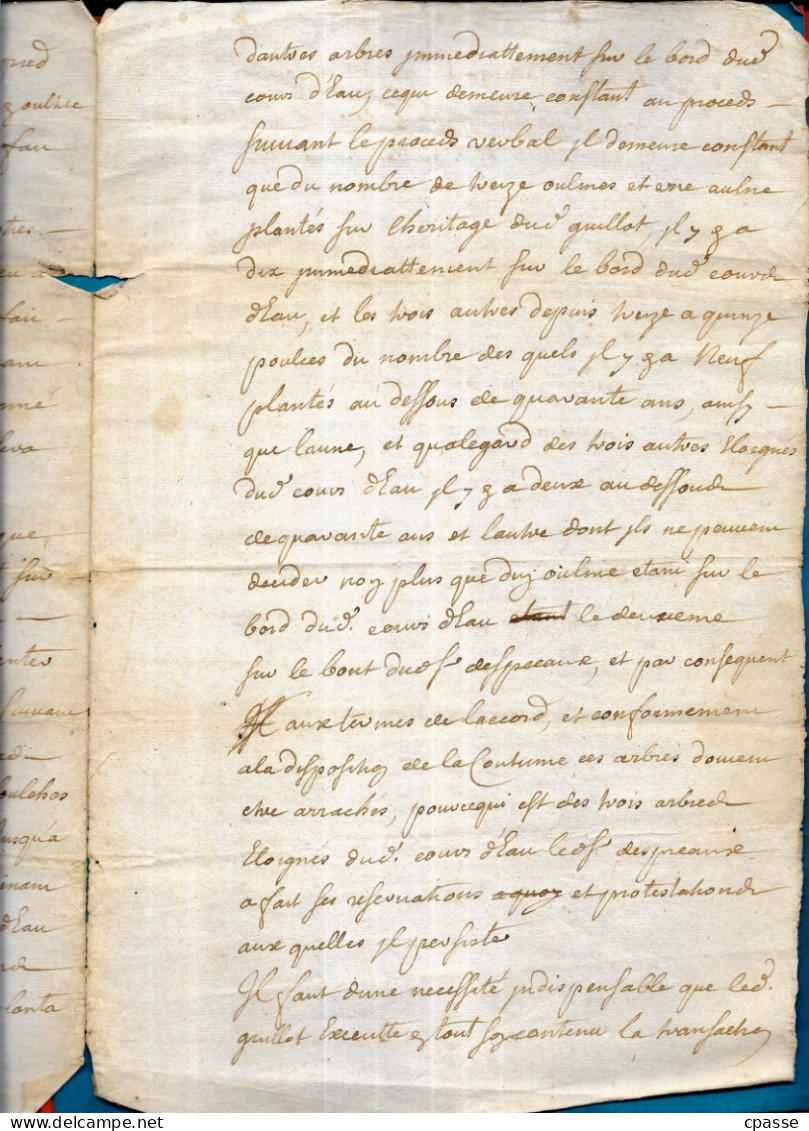 pied
goulhee
fau
tres -
eu a
fair
am
onné
leva
que,
t sur
enter
suivant
oulchos
Jusqu'a
inant
d'Eau
lanta
dautres arbres jmmediattement sur le bord dud.
cours d'Eau, cequi demeure constant au proceds -
suivant le proceds verbal jl demeure constant
que du nombre de treize oulmes et une aulne
plantés sur l'heritage dud. guillot, jl y a
dix jmmediattement sur le bord dud. cours
d'Eau, et les trois autres depuis treize a quinze
poulces du nombre des quels jl y a Neuf
plantés au dessous de quarante ans, ainsy -
que laune, et qualegard des trois autres Eloignes
dud. cours d'Eau jl y a deux au dessous
de quarante ans et lautre dont jls ne peuvent
decider noy plus que duy oulme etant sur le
bord dud. cours d'Eau etant le deuxieme
sur le bout dud. s. despreaux, et par consequent
aux termes de laccord, et conformement
ala dispositioy de la Coutume ces arbres doivent
etre arrachés, pourcequi est des trois arbres
Eloignés dud. cours d'Eau led. s. despreaux
a fait ses reservations aquoy et protestations
aux quelles jl persiste
Jl faut dune necessité jndispensable que led.
guillot Execute Eytout soy contenu la transactioy
cpasse